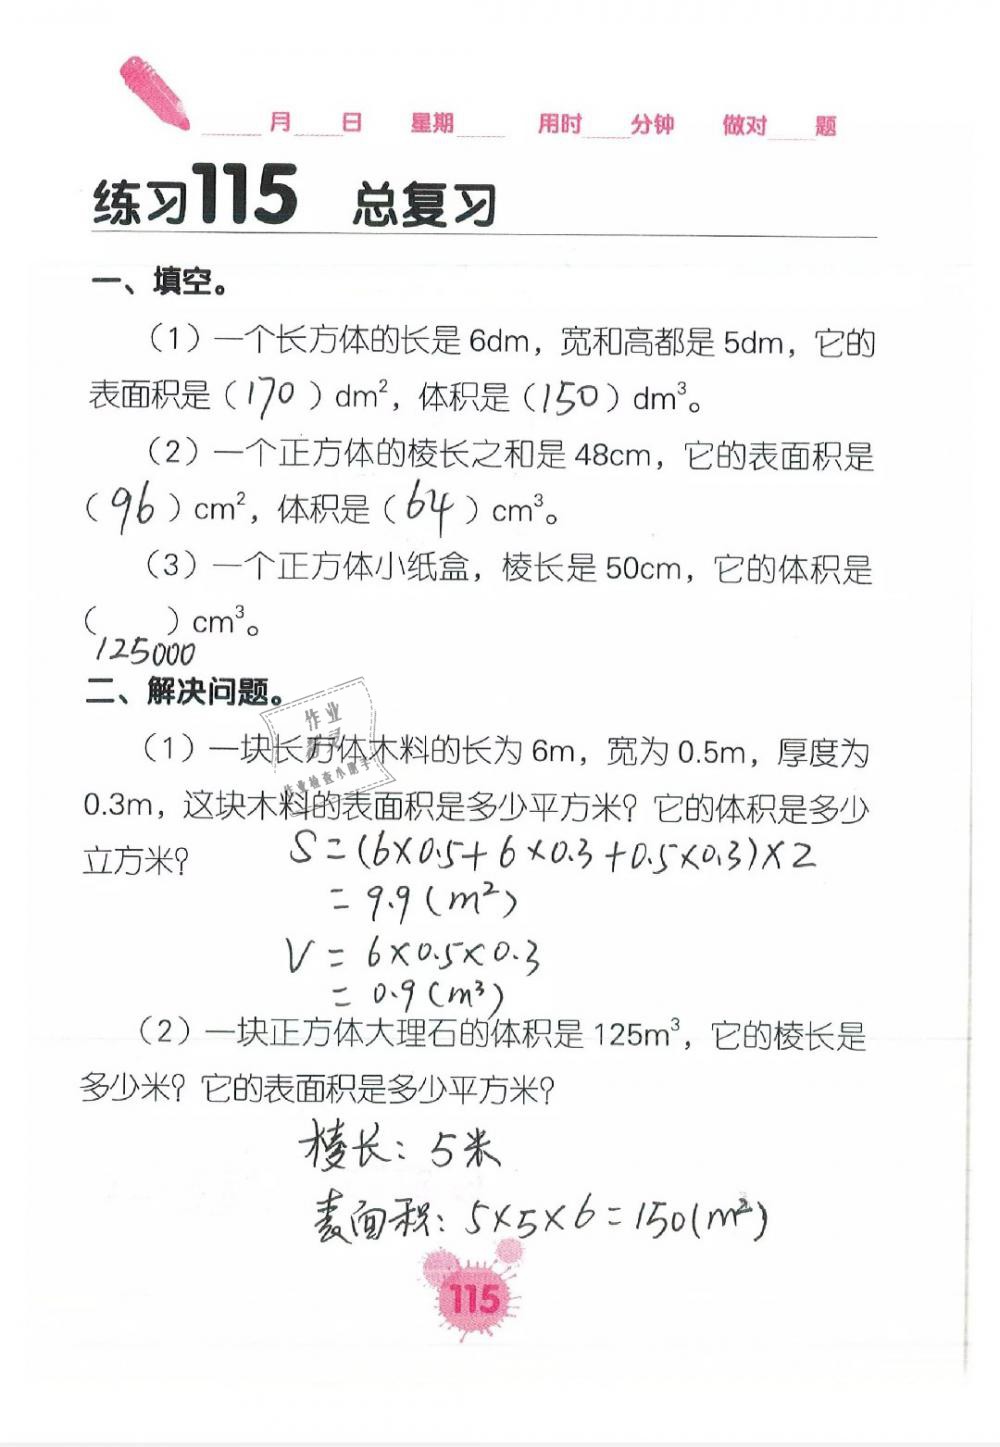 ____月____日 星期____ 用时____分钟 做对____题
练习115 总复习
一、填空。
（1）一个长方体的长是6dm，宽和高都是5dm，它的
表面积是（170）dm²，体积是（150）dm³。
（2）一个正方体的棱长之和是48cm，它的表面积是
（96）cm²，体积是（64）cm³。
（3）一个正方体小纸盒，棱长是50cm，它的体积是
（ ）cm³。
125000
二、解决问题。
作业
作业检查小助手
（1）一块长方体木料的长为6m，宽为0.5m，厚度为
0.3m，这块木料的表面积是多少平方米？它的体积是多少
立方米？
S=(6×0.5+6×0.3+0.5×0.3)×2
=9.9(m²)
V=6×0.5×0.3
=0.9(m³)
（2）一块正方体大理石的体积是125m³，它的棱长是
多少米？它的表面积是多少平方米？
棱长：5米
表面积：5×5×6=150(m²)
115